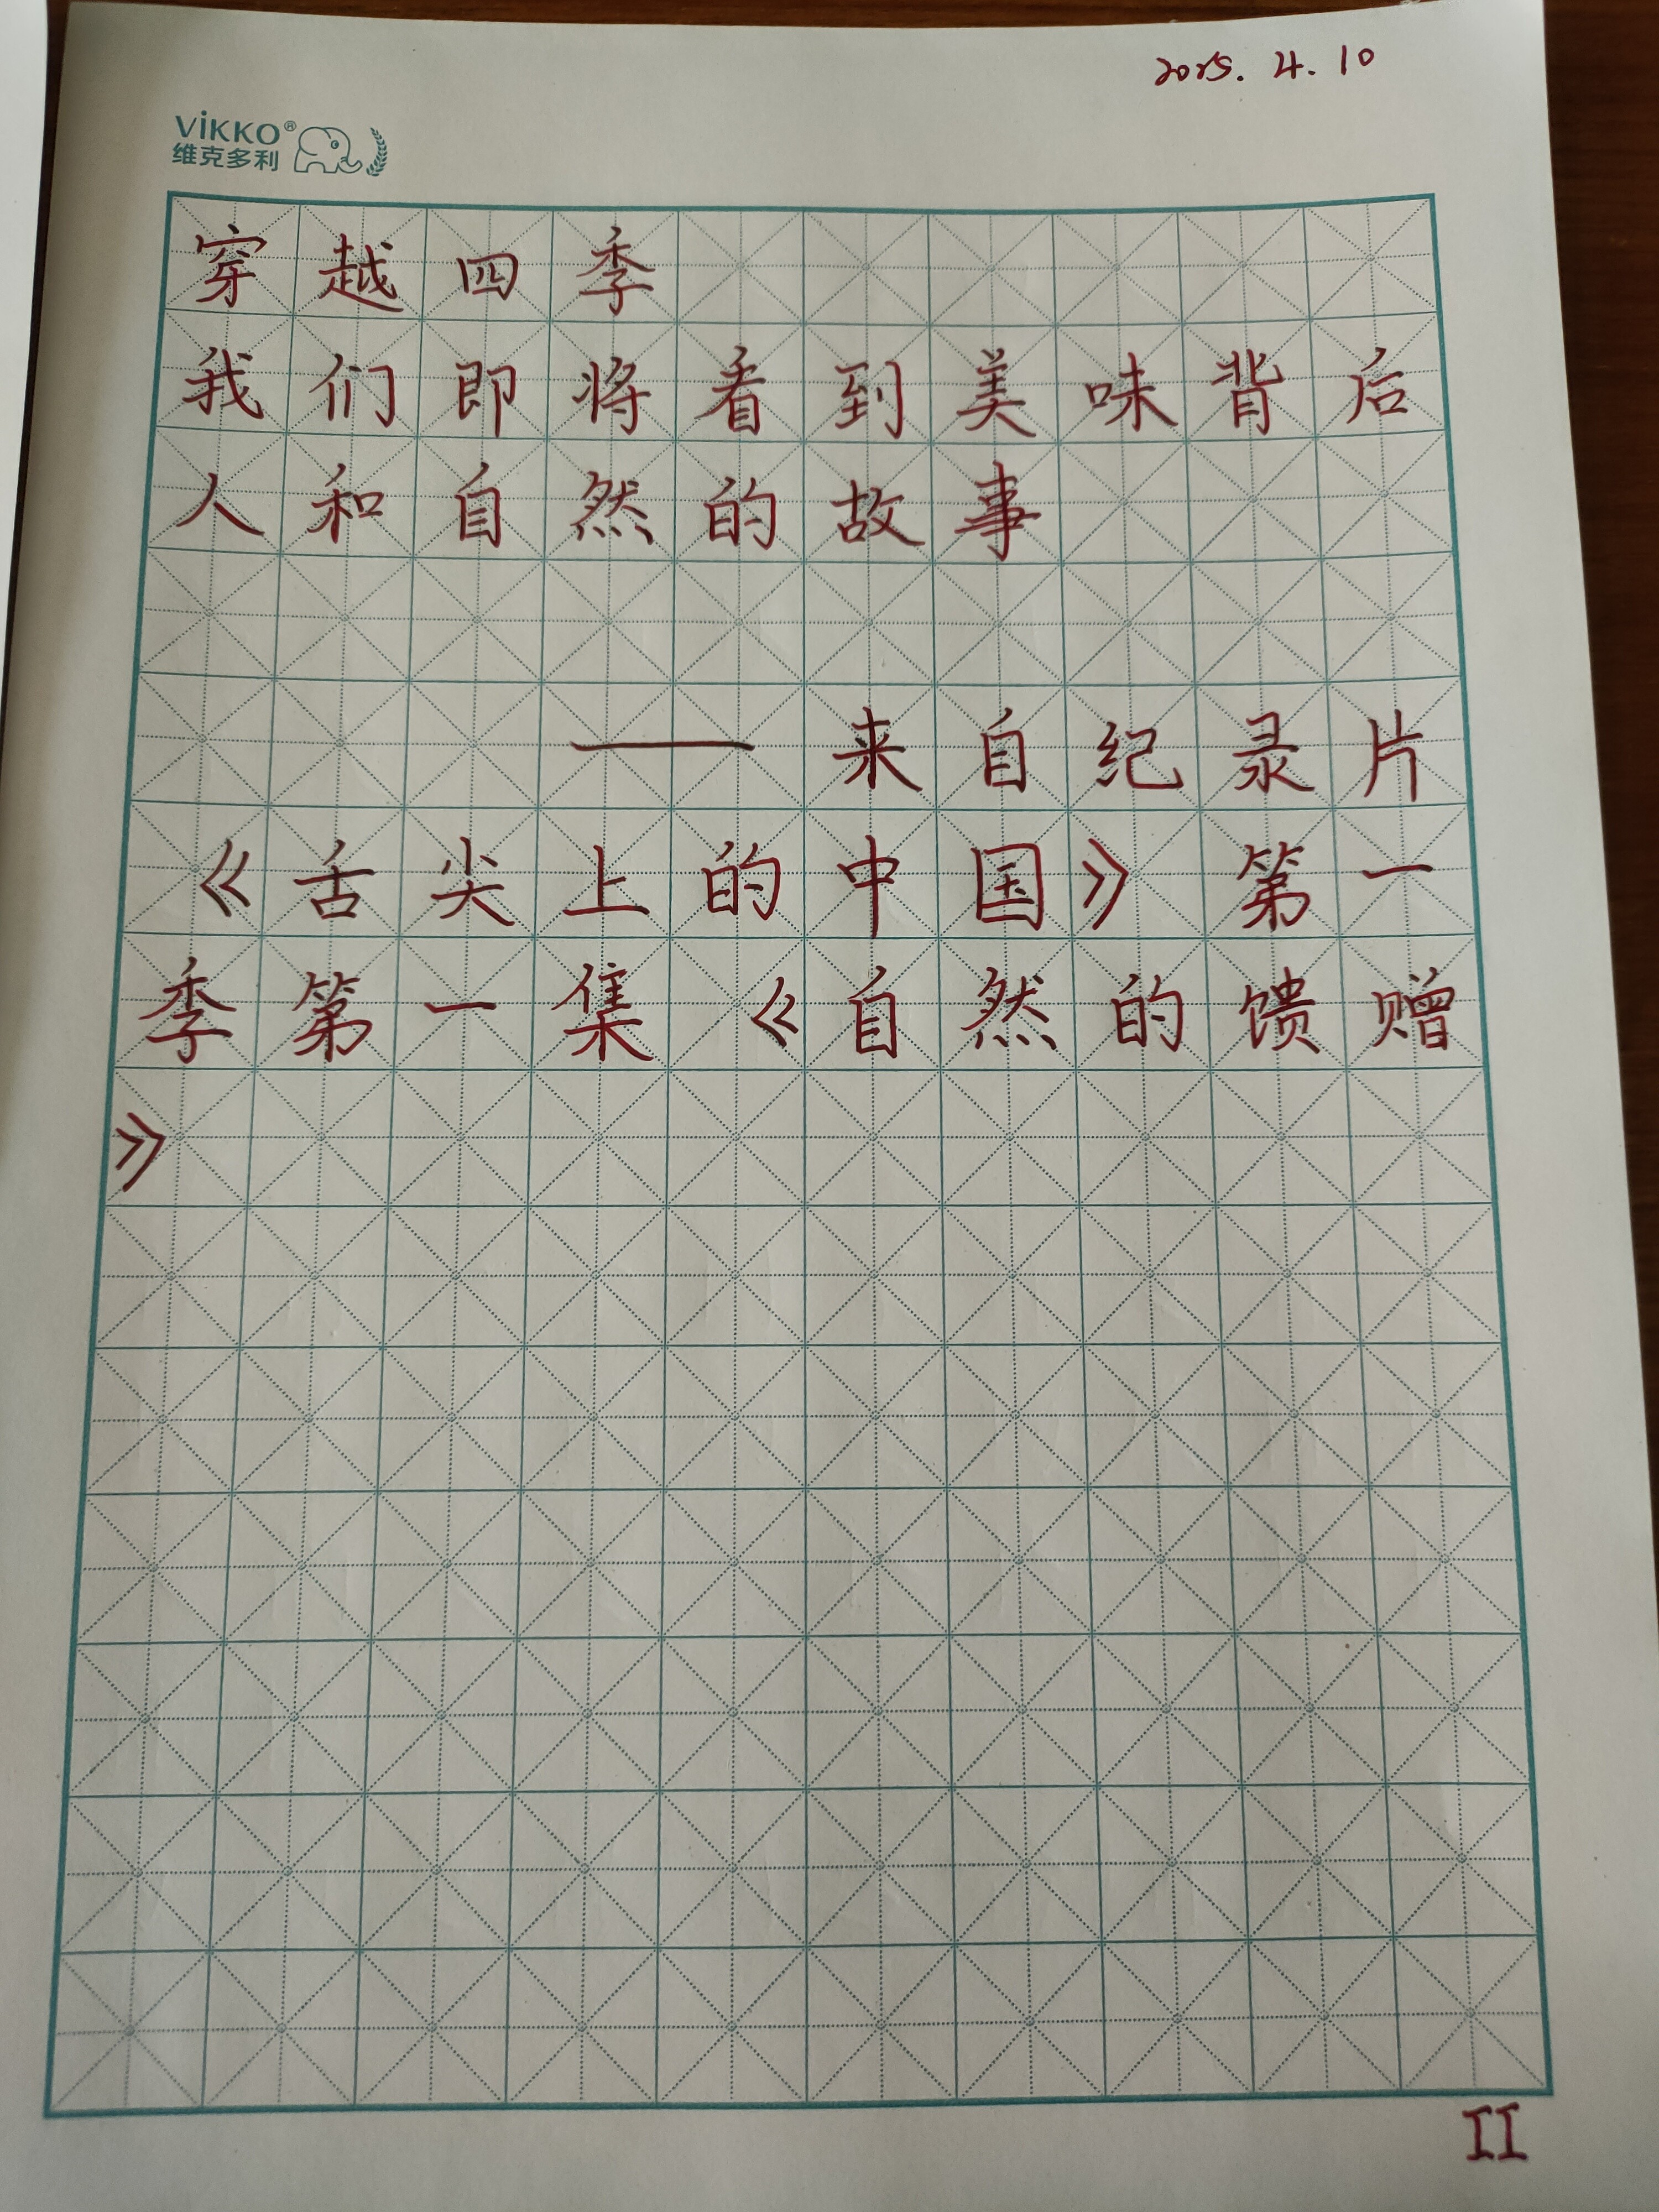 2025.4.10
ViKKO®
维克多利
穿越四季
我们即将看到美味背后
人和自然的故事
——来自纪录片
《舌尖上的中国》第一
季第一集《自然的馈赠
》
II